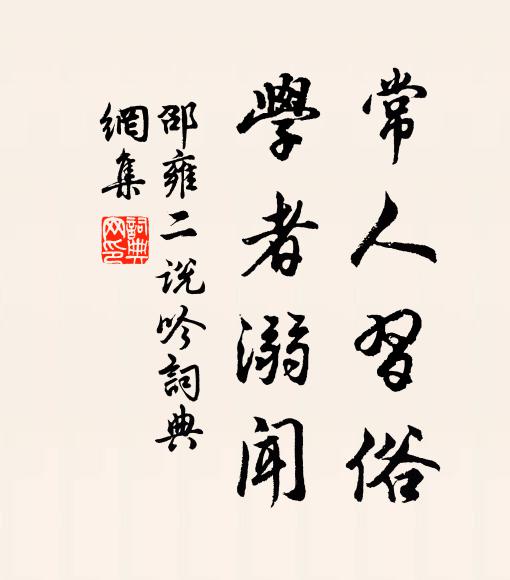 常人習俗
學者溺聞
邵雍二說吟詞典
網集
詞典
网印